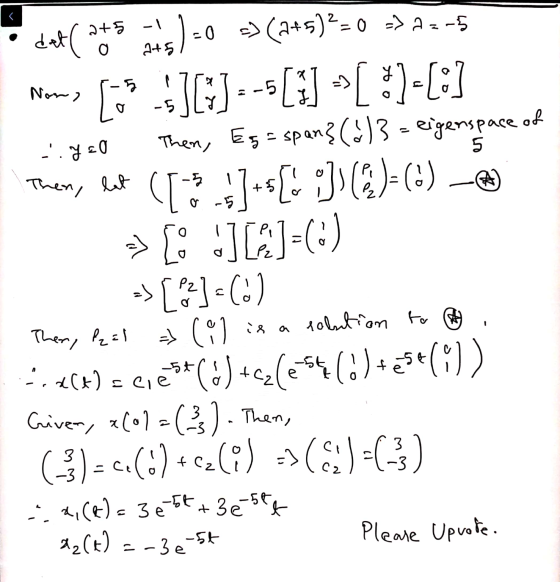 det( λ+5 -1 0 λ+5 ) = 0 => (λ+5)² = 0 => λ = -5
Now, [ -5 1 0 -5 ] [ x y ] = -5 [ x y ] => [ y 0 ] = [ 0 0 ]
∴ y = 0 Then, E5 = span{ ( 1 0 ) } = eigenspace of 5
Then, let ( [ -5 1 0 -5 ] + 5 [ 1 0 0 1 ] ) ( P1 P2 ) = ( 1 0 ) — ✪
=> [ 0 1 0 0 ] [ P1 P2 ] = ( 1 0 )
=> [ P2 0 ] = ( 1 0 )
Then, P2 = 1 => ( 0 1 ) is a solution to ✪.
∴ x(t) = c1 e^-5t ( 1 0 ) + c2 ( e^-5t t ( 1 0 ) + e^-5t ( 0 1 ) )
Given, x(0) = ( 3 -3 ). Then,
( 3 -3 ) = c1 ( 1 0 ) + c2 ( 0 1 ) => ( c1 c2 ) = ( 3 -3 )
∴ x1(t) = 3e^-5t + 3e^-5t t
x2(t) = -3e^-5t
Please Upvote.